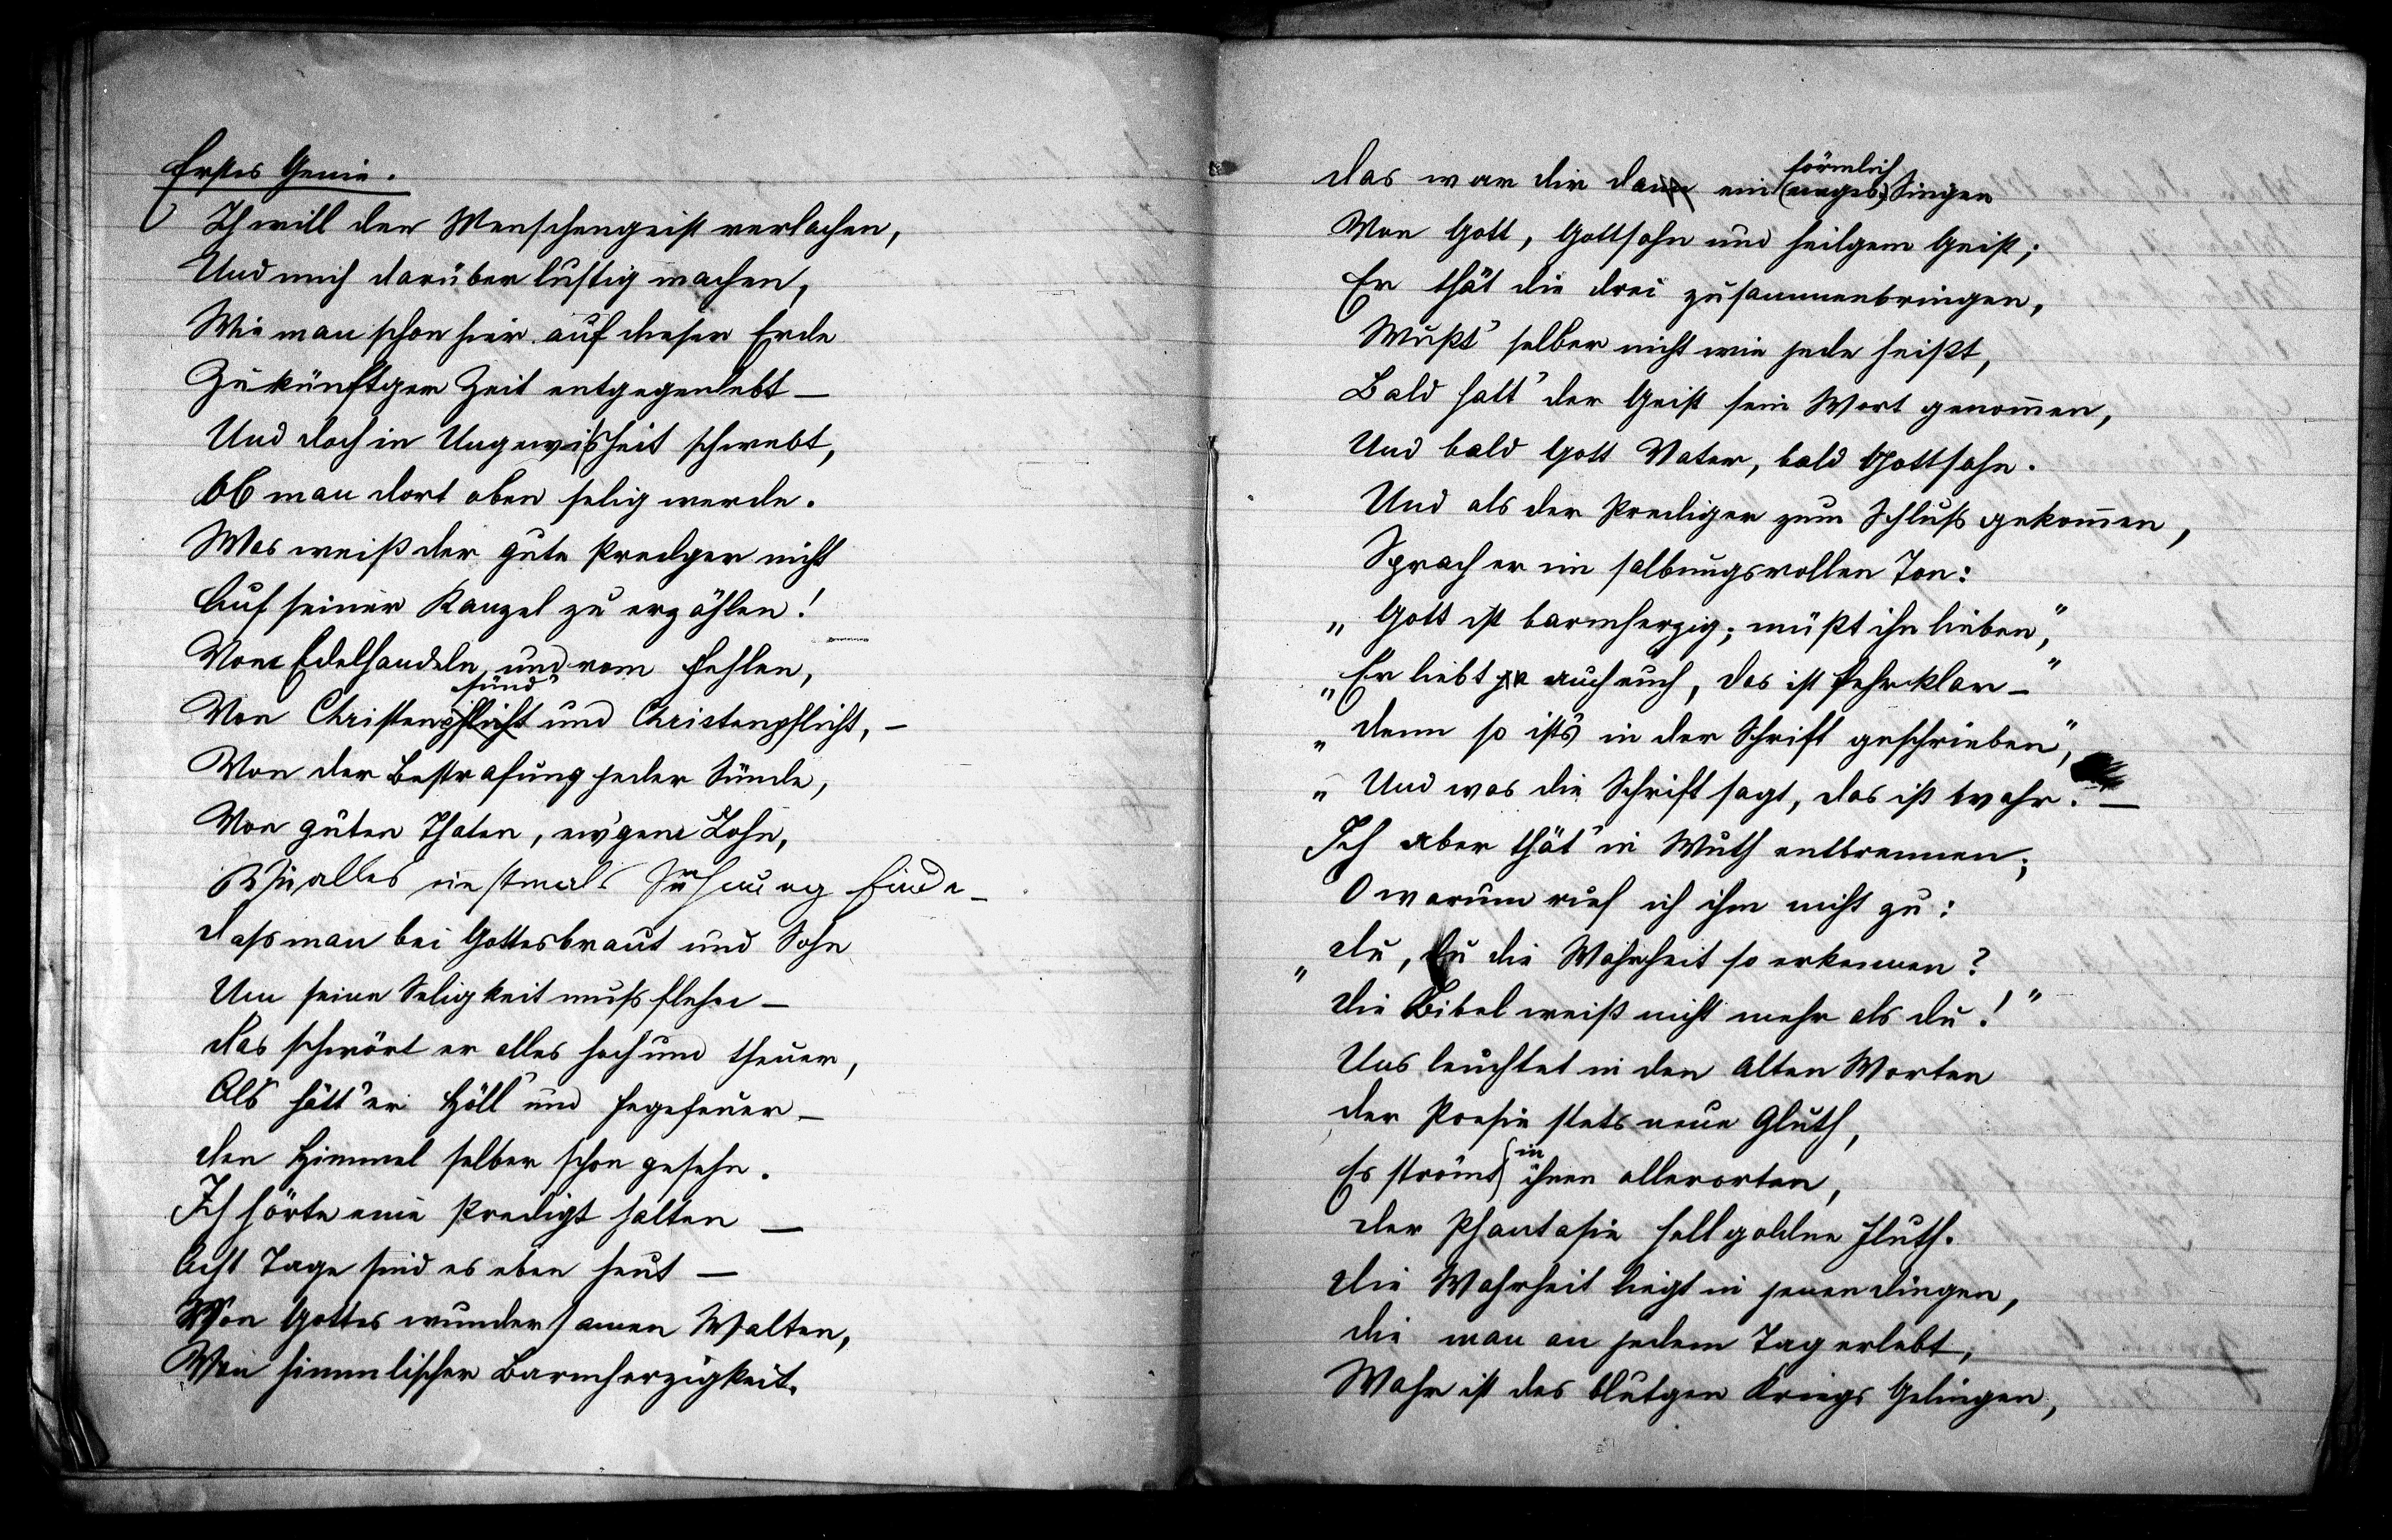 Erstes Genie.
Ich will den Menschengeist verlachen,
Und mich darüber lustig machen,
Wie man schon hier auf dieser Erde
Zukünftger Zeit entgegenlebt –
Und doch in Ungewißheit schwebt,
Ob man dort oben selig werde.
Was weiß der gute Predger nicht
Auf seiner Kanzel zu erzählen!
Vom Edelhandeln und vom Fehlen,
sünd'
Von Christenpflicht und Christenpflicht, –
Von der Bestrafung jeder Sünde,
Von guten Thaten, ew'gem Lohn,
Wie alles einstmals Sühnung finde –
Dass man bei Gottesbraut und Sohn
Um seine Seligkeit muss flehn –
Das schwört er alles hoch und theuer,
Als hätt' er Höll' und Fegefeuer –
Den Himmel selber schon gesehn.
Ich hörte eine Predigt halten –
Acht Tage sind es eben heut –
Von Gottes wundersamen Walten,
Von himmlischer Barmherzigkeit.
förmlich
Das war dir dann ein Singen
Von Gott, Gottsohn und heilgem Geist;
Er thät die drei zusammenbringen,
Wußt' selber nicht wie jede heißt,
Bald hatt' der Geist sein Wort genom̅en,
Und bald Gott Vater, bald Gottsohn.
Und als der Prediger zum Schluss gekom̅en,
Sprach er im salbungsvollen Ton:
„Gott ist barmherzig; müßt ihn lieben,"
„Er liebt ja auch euch, das ist sehr klar –"
„Denn so ists in der Schrift geschrieben",
„Und was die Schrift sagt, das ist wahr. –
Ich aber thät' in Wuth entbrennen;
O warum rief ich ihm nicht zu:
„Du, Du die Wahrheit so erkennen?
Die Bibel weiß nicht mehr als du!"
Uns leuchtet in den Alten Worten
Der Poesie stets neue Gluth,
in
Es strömt ihnen allerorten,
Der Phantasie hellgoldne Fluth.
Die Wahrheit liegt in jenen Dingen,
Die man an jedem Tag erlebt,
Wahr ist des blutgen Kriegs Gelingen,